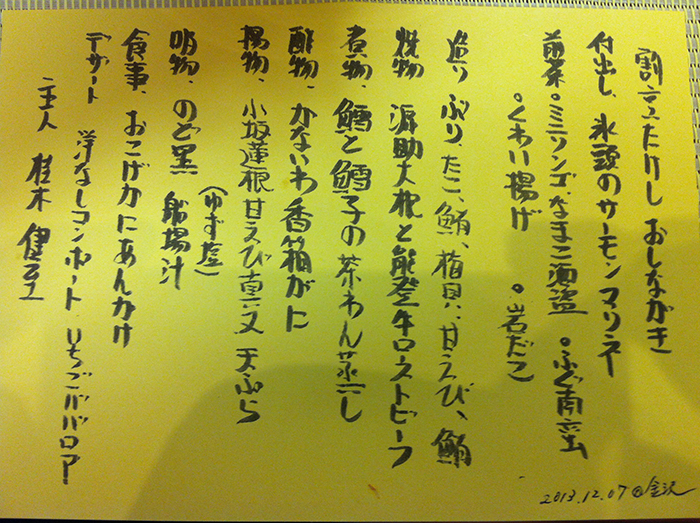 割烹たけし おしながき
付出し、氷頭のサーモンマリネー
前菜 。ミニリンゴ、なまこ酒盗 。ふぐ南蛮
。くわい揚げ 。岩だこ
造り ぶり、たこ、鮪、梅貝、甘えび、鮪
焼物 源助大根と能登牛ローストビーフ
煮物、鱈と鱈子の茶わん蒸し
酢物、かないわ香箱がに
揚物、小坂蓮根 甘えび真丈 天ぷら
(ゆず塩)
吸物、のど黒 船場汁
食事、おこげかにあんかけ
デザート 洋なしコンポート、いちごババロア
主人 桂木
2013.12.07 @金沢